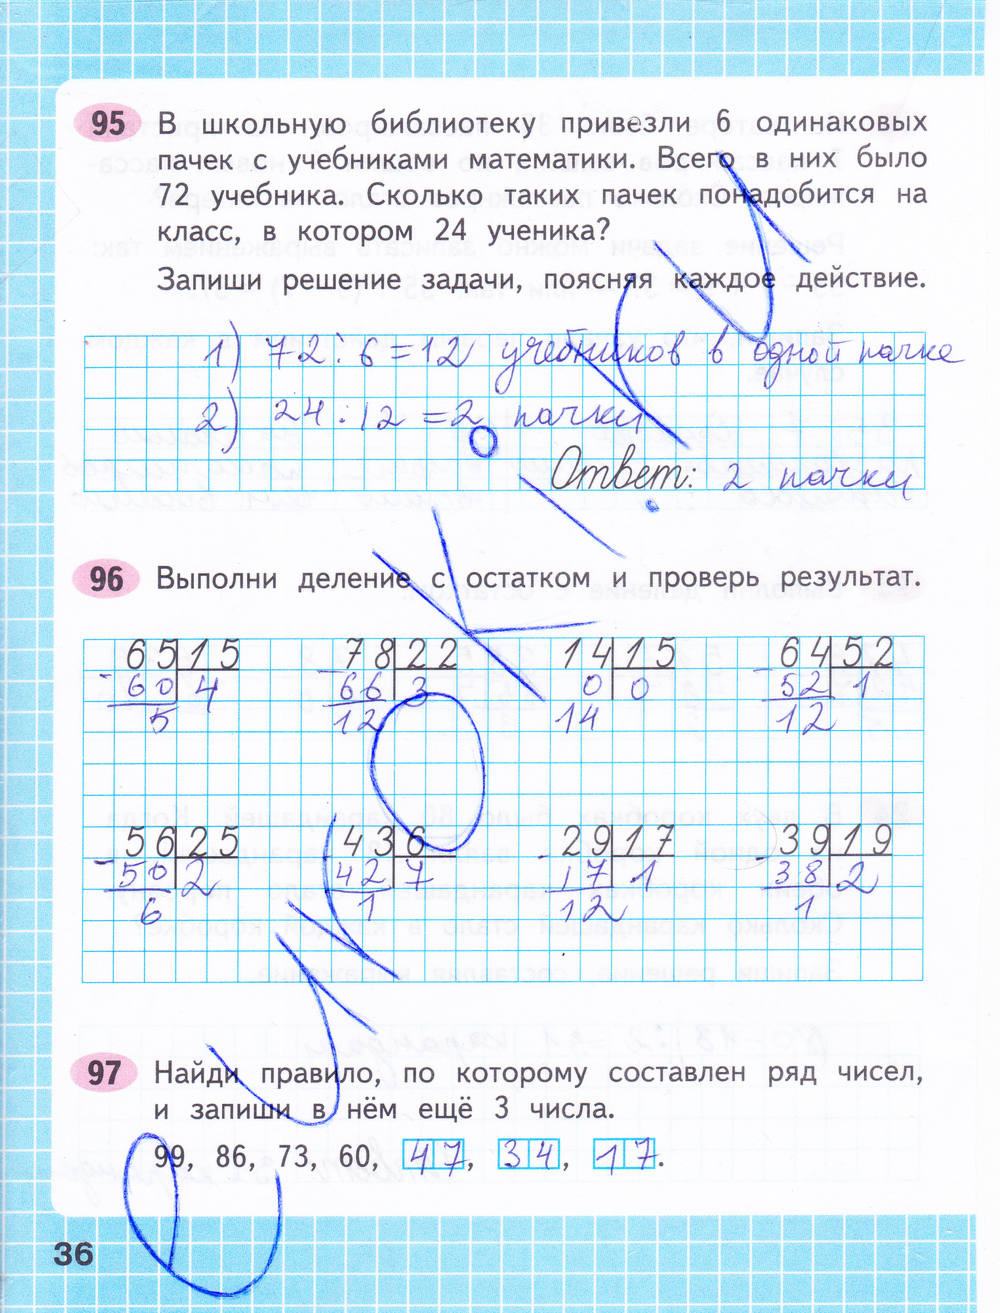 95 В школьную библиотеку привезли 6 одинаковых
пачек с учебниками математики. Всего в них было
72 учебника. Сколько таких пачек понадобится на
класс, в котором 24 ученика?
Запиши решение задачи, поясняя каждое действие.
1) 72 : 6 = 12 учебников в одной пачке
2) 24 : 12 = 2 пачки
Ответ: 2 пачки
96 Выполни деление с остатком и проверь результат.
65 15 78 22 14 15 64 52
- 60 4 - 66 3 0 0 - 52 1
5 12 14 12
56 25 43 6 29 17 39 19
- 50 2 - 42 7 - 17 1 - 38 2
6 1 12 1
97 Найди правило, по которому составлен ряд чисел,
и запиши в нём ещё 3 числа.
99, 86, 73, 60, 47, 34, 17.
36